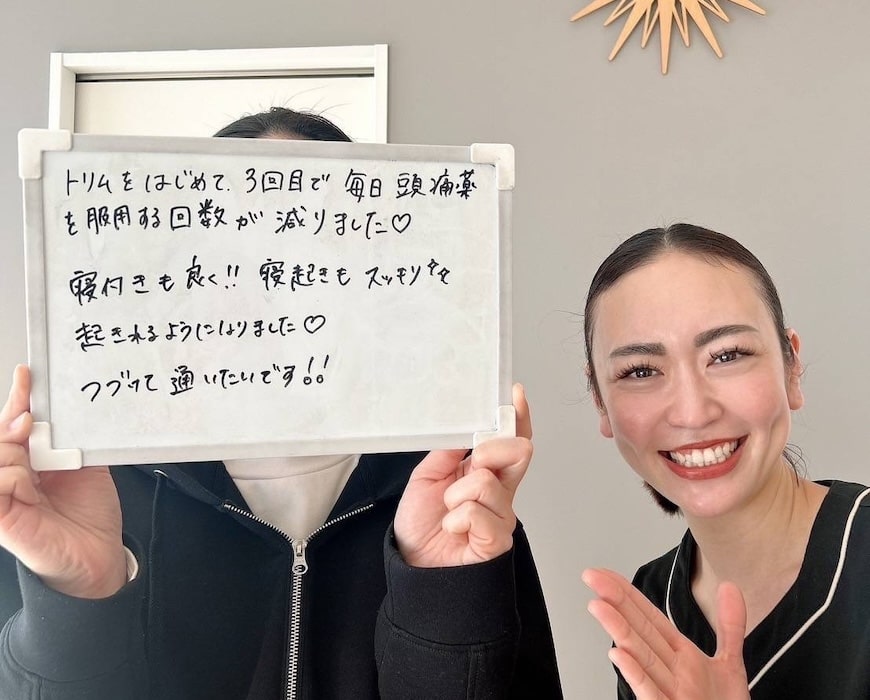 トリムをはじめて、3回目で 毎日 頭痛薬
を服用する回数が 減りました♡
寝付きも良く!! 寝起きも スッキリ
起きれるようになりました♡
つづけて 通いたいです!!